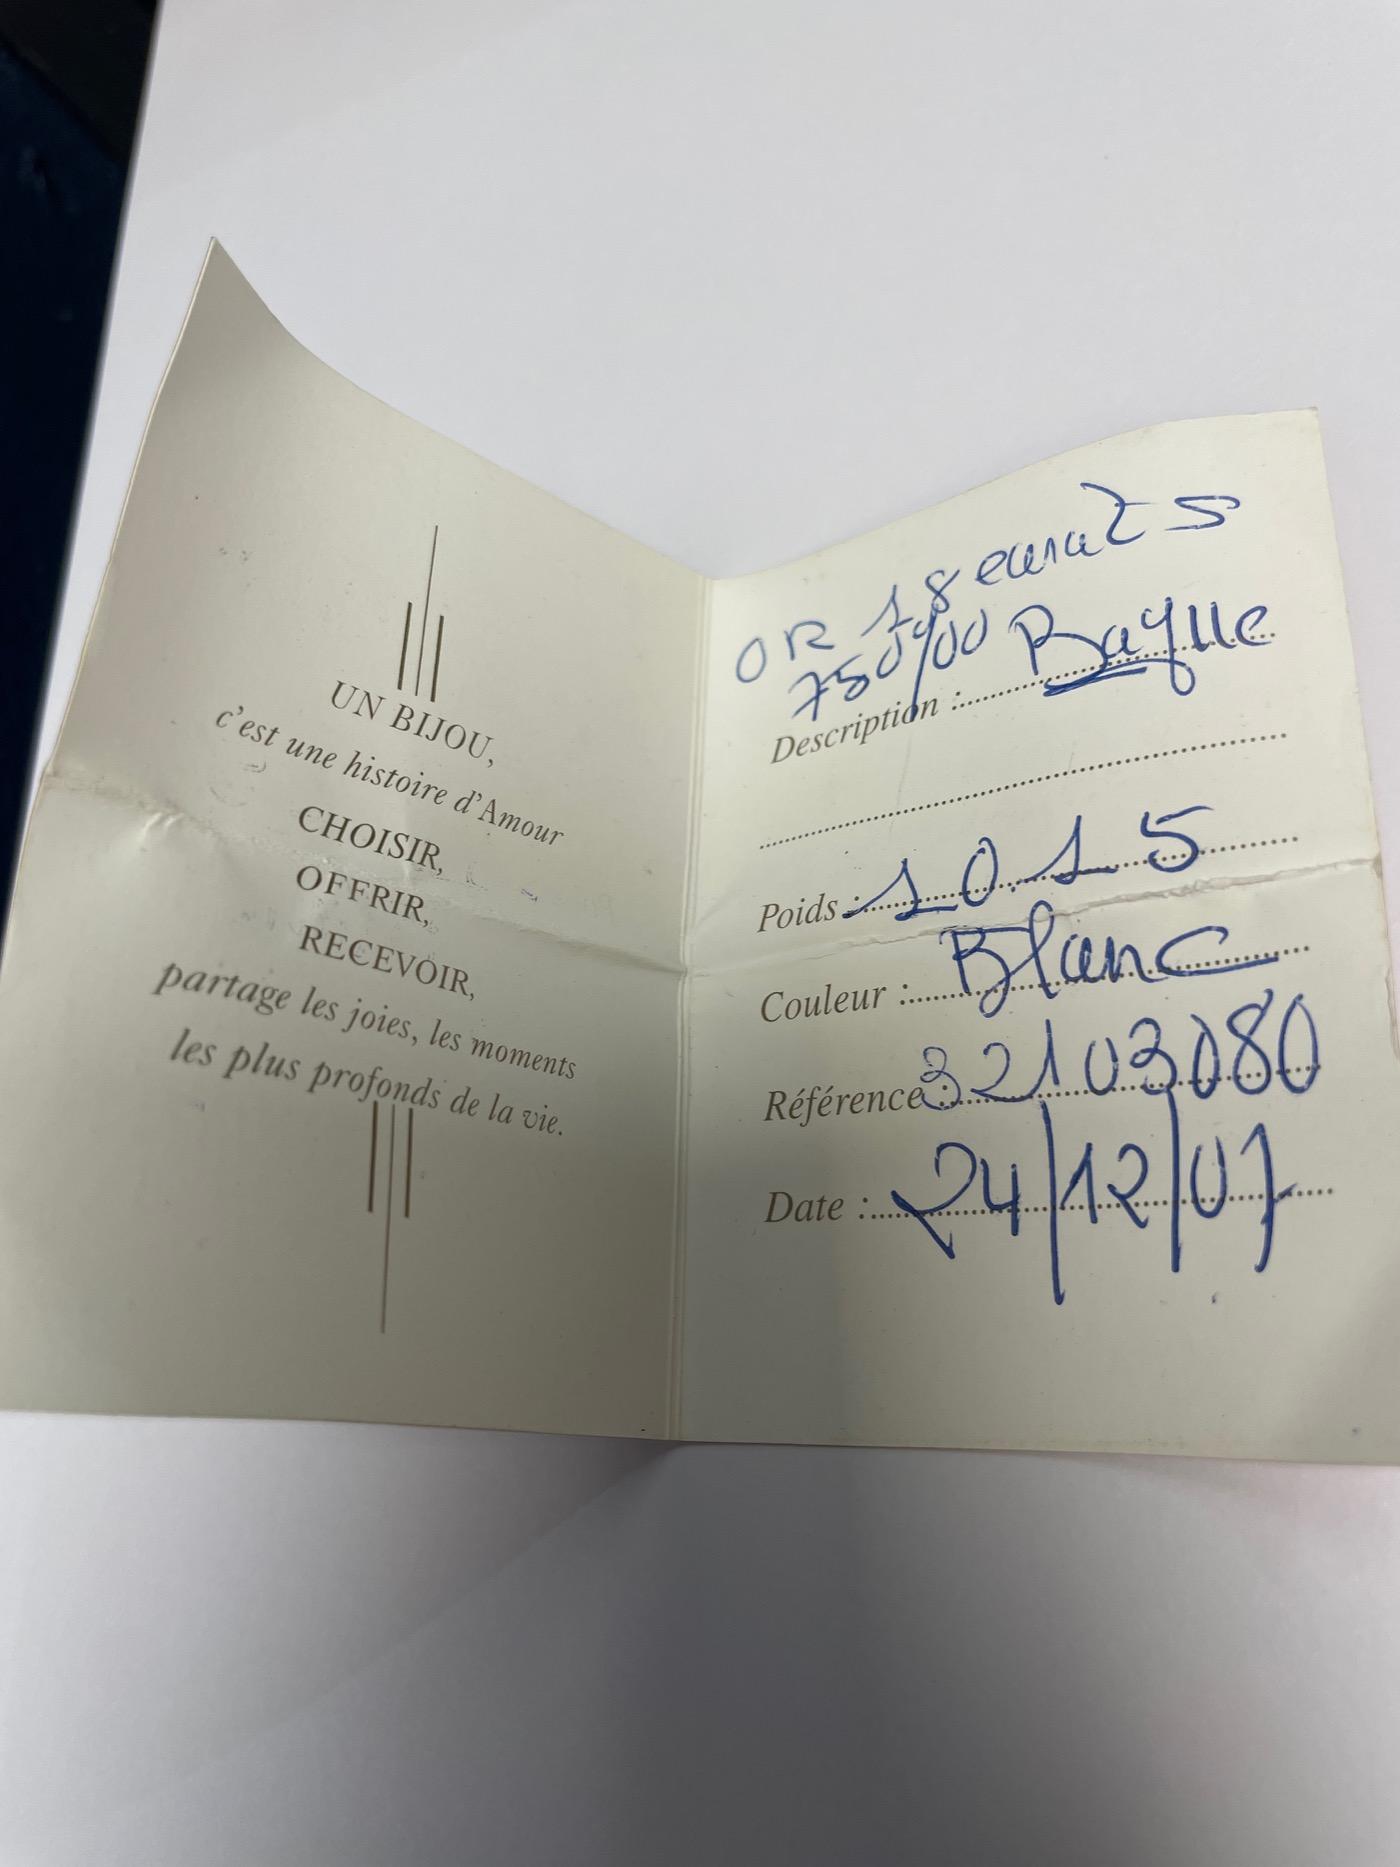 UN BIJOU,
c'est une histoire d'Amour
CHOISIR,
OFFRIR,
RECEVOIR,
partage les joies, les moments
les plus profonds de la vie.
OR 18 carats
750/00
Description : Bague
Poids : 10.15
Couleur : Blanc
Référence : 32103080
Date : 24/12/07